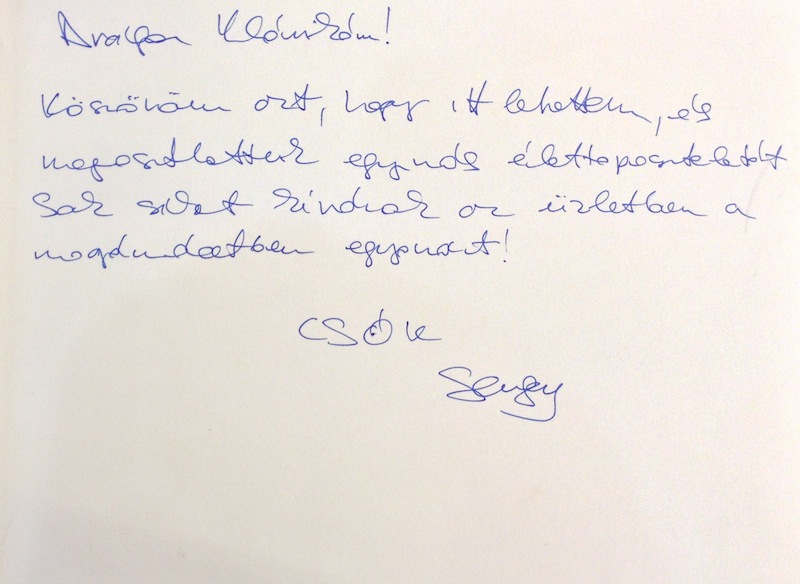 Drága Klárikám!
Köszönöm azt, hogy itt lehettem, és
megoszthattuk egymás élettapasztalatát
Sok sikert kívánok az üzletben a
magánéletben egyaránt!
CSÓK